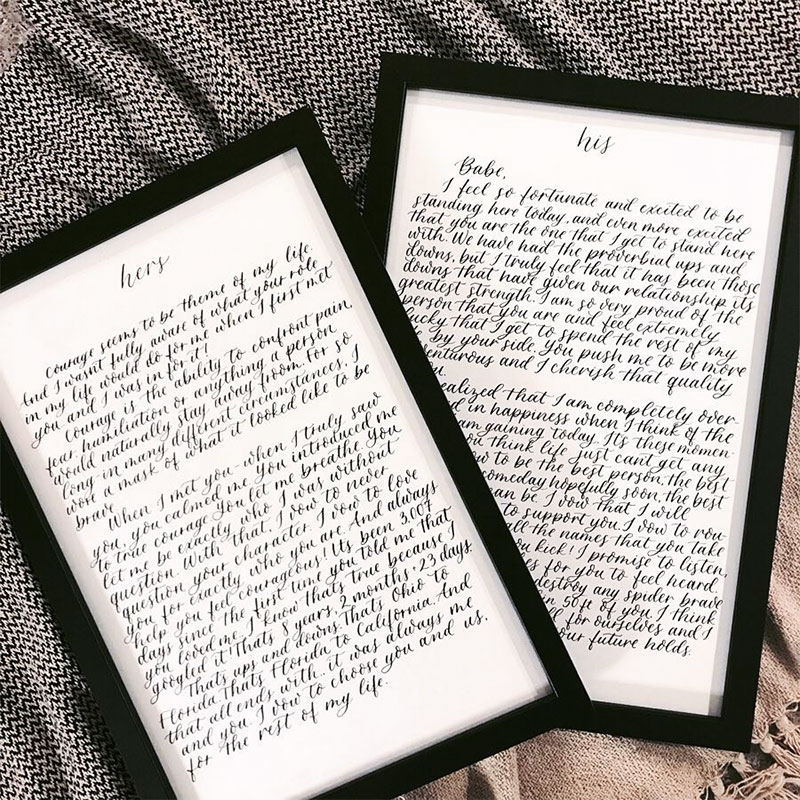 hers
Courage seems to be theme of my life.
And I wasn't fully aware of what your role
in my life would do for me when I first met
you and I was in for it!
Courage is the ability to confront pain,
fear, humiliation or anything a person
would naturally stay away from. For so
long in many different circumstances, I
wore a mask of what it looked like to be
brave.
When I met you - when I truly saw
you, you calmed me. You introduced me
to true courage. You let me breathe. You
let me be exactly who I was without
question. With that, I vow to never
question your character. I vow to love
you for exactly who you are. And always
help you feel courageous! Its been 3,007
days since the first time you told me that
you loved me. I know thats true because I
googled it! Thats 8 years, 2 months, 23 days.
Thats ups and downs. Thats Ohio to
Florida. Thats Florida to California. And
that all ends with, it was always me
and you. I vow to choose you and us,
for the rest of my life.
his
Babe,
I feel so fortunate and excited to be
standing here today, and even more excited
that you are the one that I get to stand here
with. We have had the proverbial ups and
downs, but I truly feel that it has been those
downs that have given our relationship its
greatest strength. I am so very proud of the
person that you are and feel extremely
lucky that I get to spend the rest of my
by your side. You push me to be more
and I cherish that quality
that I am completely over-
in happiness when I think of the
am gaining today. Its these momen-
you think life just cant get any
to be the best person, the best
someday hopefully soon, the best
can be. I vow that I will
to support you. I vow to
all the names that you take
you kick! I promise to listen,
for you to feel heard.
destroy any spider brave
in 50ft of you. I think
for ourselves and I
our future holds.